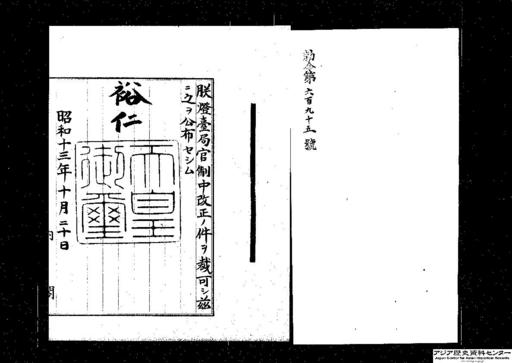 勅令第六百九十五號
朕燈臺局官制中改正ノ件ヲ裁可シ茲
ニ之ヲ公布セシム
裕仁
天皇御璽
昭和十三年十月二十日
内閣
アジア歴史資料センター
Japan Center for Asian Historical Records